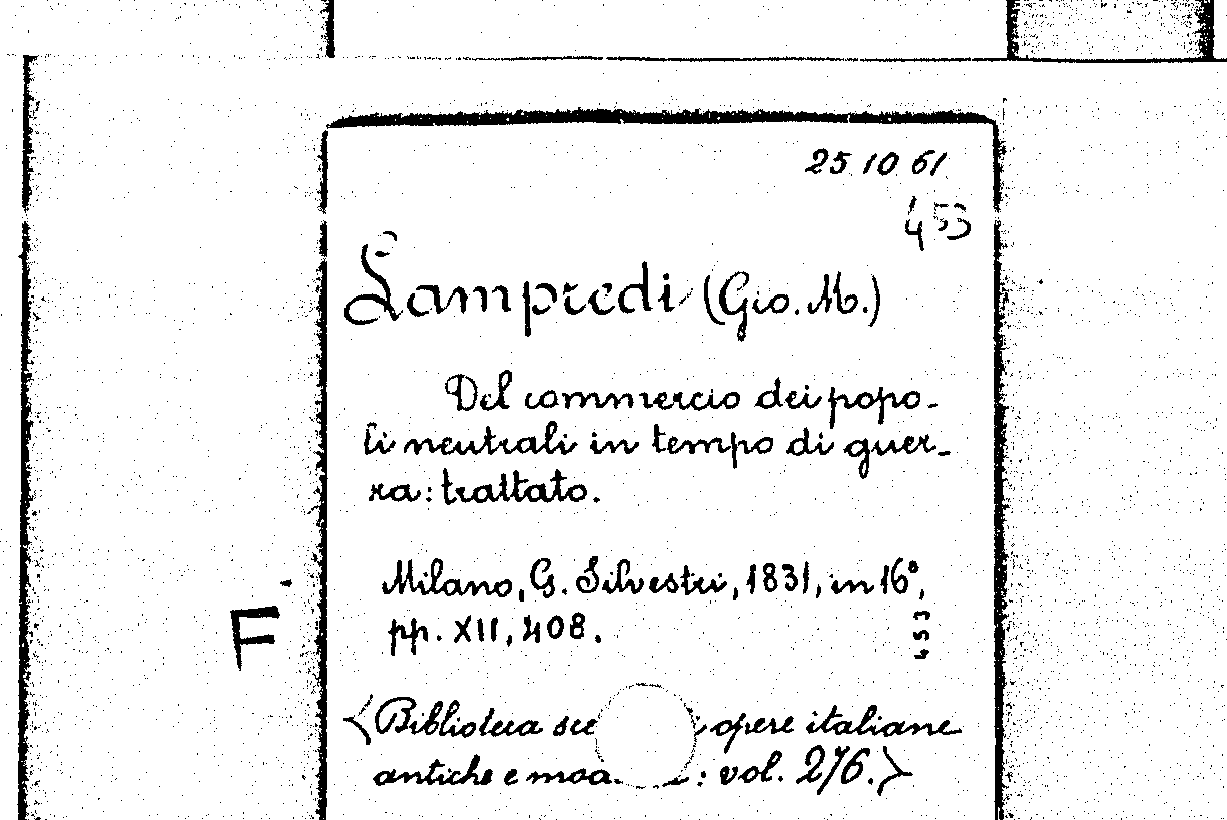 25 10 61
453
Lampredi (Gio. M.)
Del commercio dei popo-
li neutrali in tempo di guer-
ra: trattato.
Milano, G. Silvestri, 1831, in 16°,
pp. XII, 408.
453
F
<Biblioteca opere italiane
antiche e : vol. 276.>